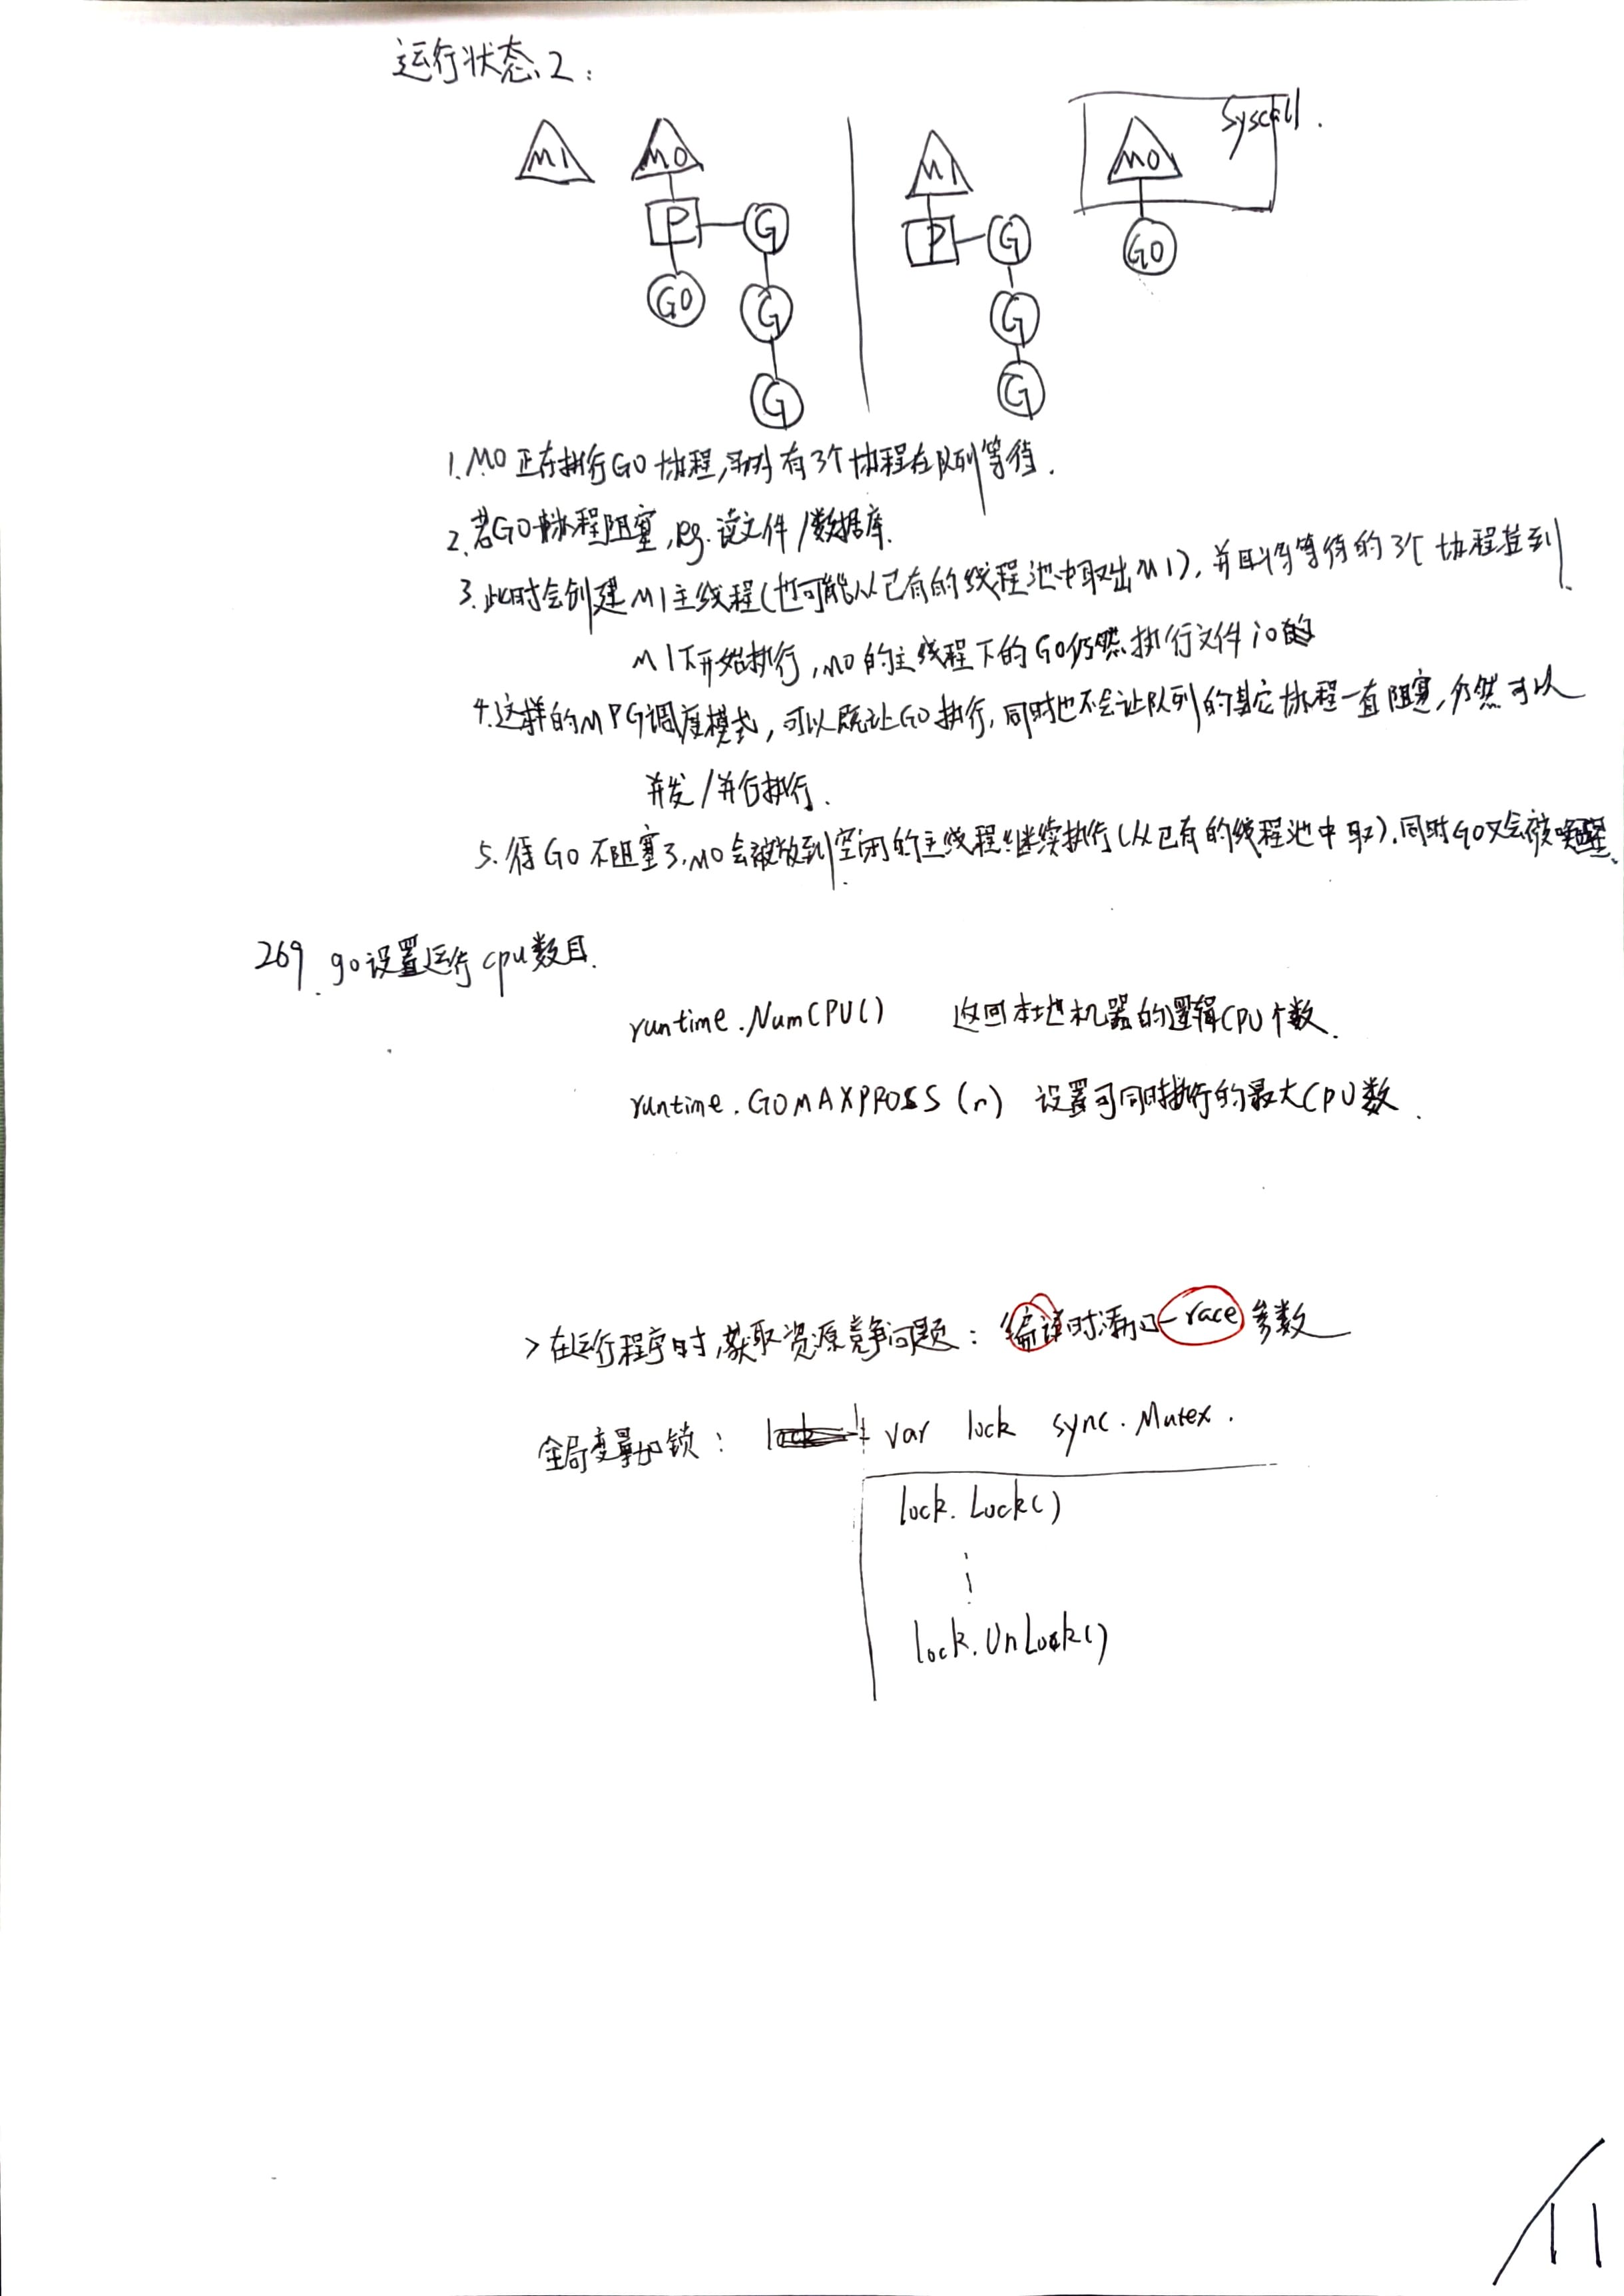 运行状态2：
M1 M0 M1 M0 Syscall.
P G P G G0
G0 G G
G G
1. M0正在执行G0协程，另外有3个协程在队列等待.
2. 若G0协程阻塞，eg. 读文件/数据库.
3. 此时会创建M1主线程(也可能从已有的线程池中取出M1)，并且将等待的3个协程挂到
M1下开始执行，M0的主线程下的G0仍然执行文件io的
4. 这样的MPG调度模式，可以既让G0执行，同时也不会让队列的其它协程一直阻塞，仍然可以
并发/并行执行.
5. 待G0不阻塞了，M0会被放到空闲的主线程继续执行(从已有的线程池中取)，同时G0又会被唤醒.
269. go设置运行cpu数目.
runtime.NumCPU() 返回本地机器的逻辑CPU个数.
runtime.GOMAXPROSS(n) 设置可同时执行的最大CPU数.
>在运行程序时，获取资源竞争问题：编译时添加-race参数
全局变量加锁： var lock sync.Mutex.
lock.Lock()
lock.UnLock()
11